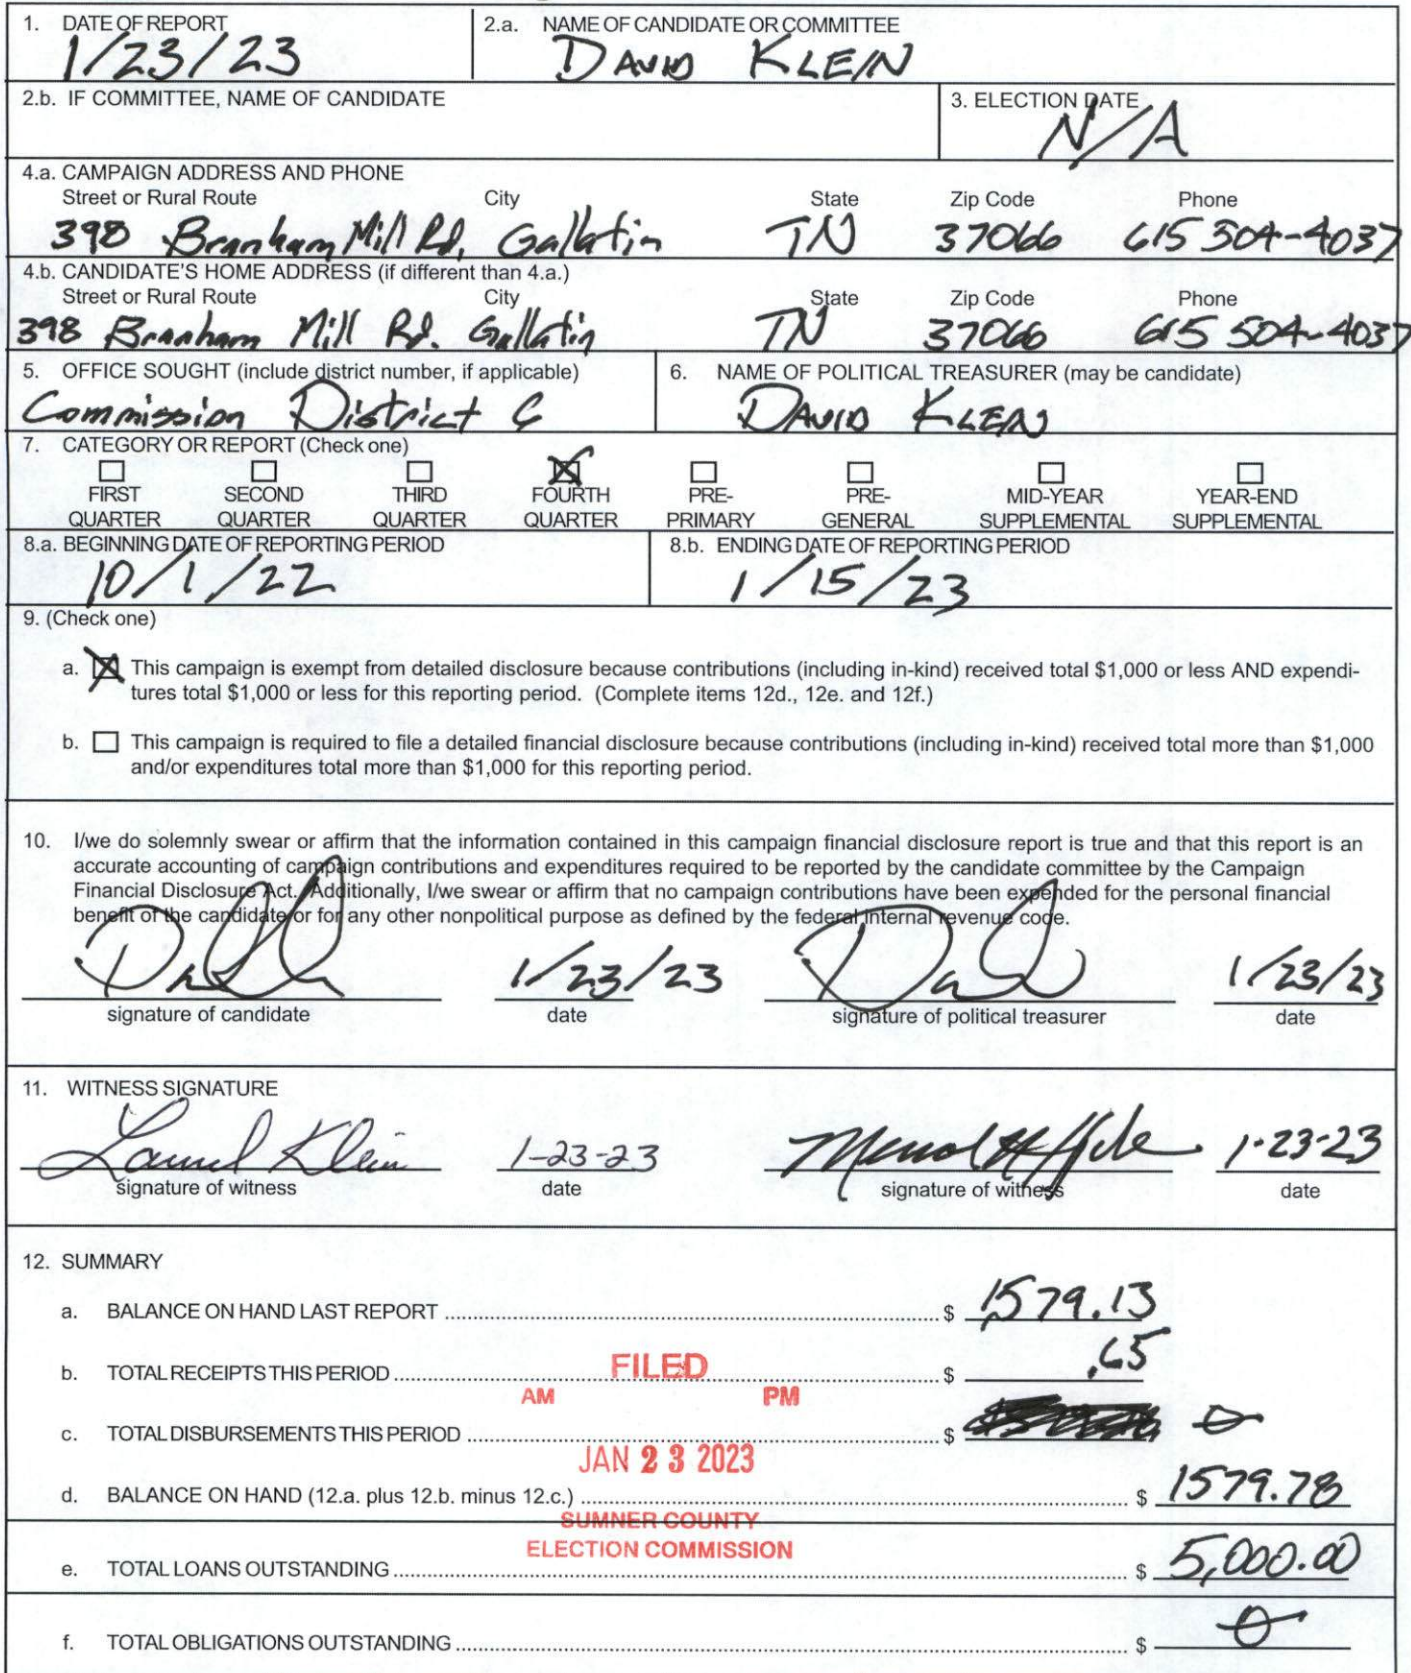 1. DATE OF REPORT
1/23/23
2.a. NAME OF CANDIDATE OR COMMITTEE
DAVID KLEIN
2.b. IF COMMITTEE, NAME OF CANDIDATE
3. ELECTION DATE
N/A
4.a. CAMPAIGN ADDRESS AND PHONE
Street or Rural Route City State Zip Code Phone
398 Branham Mill Rd, Gallatin TN 37066 615 504-4037
4.b. CANDIDATE'S HOME ADDRESS (if different than 4.a.)
Street or Rural Route City State Zip Code Phone
398 Branham Mill Rd. Gallatin TN 37066 615 504-4037
5. OFFICE SOUGHT (include district number, if applicable)
Commission District 6
6. NAME OF POLITICAL TREASURER (may be candidate)
DAVID KLEIN
7. CATEGORY OR REPORT (Check one)
FIRST SECOND THIRD FOURTH PRE- PRE- MID-YEAR YEAR-END
QUARTER QUARTER QUARTER QUARTER PRIMARY GENERAL SUPPLEMENTAL SUPPLEMENTAL
8.a. BEGINNING DATE OF REPORTING PERIOD
10/1/22
8.b. ENDING DATE OF REPORTING PERIOD
1/15/23
9. (Check one)
a. This campaign is exempt from detailed disclosure because contributions (including in-kind) received total $1,000 or less AND expendi-
tures total $1,000 or less for this reporting period. (Complete items 12d., 12e. and 12f.)
b. This campaign is required to file a detailed financial disclosure because contributions (including in-kind) received total more than $1,000
and/or expenditures total more than $1,000 for this reporting period.
10. I/we do solemnly swear or affirm that the information contained in this campaign financial disclosure report is true and that this report is an
accurate accounting of campaign contributions and expenditures required to be reported by the candidate committee by the Campaign
Financial Disclosure Act. Additionally, I/we swear or affirm that no campaign contributions have been expended for the personal financial
benefit of the candidate or for any other nonpolitical purpose as defined by the federal internal revenue code.
1/23/23 1/23/23
signature of candidate date signature of political treasurer date
11. WITNESS SIGNATURE
Laurel Klein 1-23-23 1-23-23
signature of witness date signature of witness date
12. SUMMARY
a. BALANCE ON HAND LAST REPORT $ 1579.13
b. TOTAL RECEIPTS THIS PERIOD $ .65
FILED
AM PM
c. TOTAL DISBURSEMENTS THIS PERIOD $ 0
JAN 23 2023
d. BALANCE ON HAND (12.a. plus 12.b. minus 12.c.) $ 1579.78
SUMNER COUNTY
ELECTION COMMISSION
e. TOTAL LOANS OUTSTANDING $ 5,000.00
f. TOTAL OBLIGATIONS OUTSTANDING $ 0